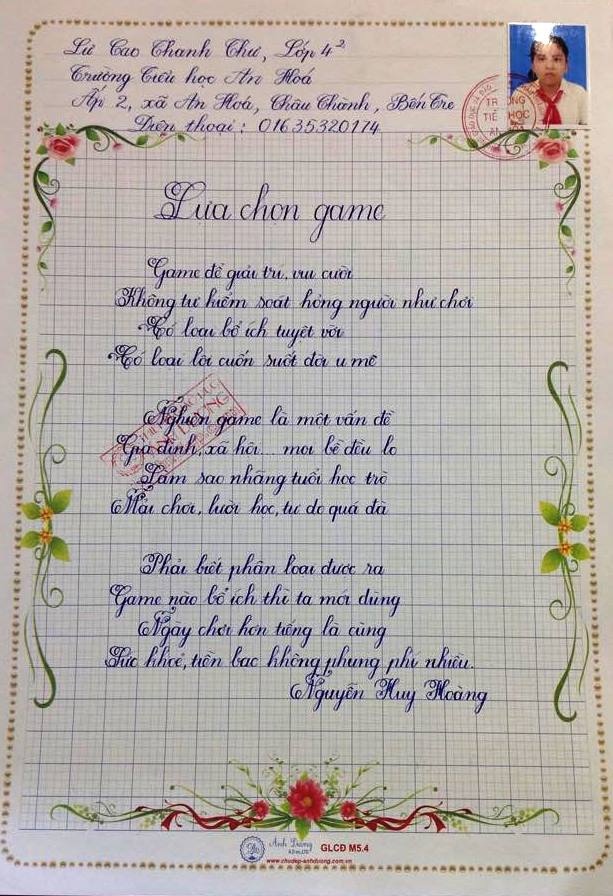 Lư Cao Thanh Thư, Lớp 4²
Trường Tiểu học An Hoá
Ấp 2, xã An Hoá, Châu Thành, Bến Tre
Điện thoại: 01635320174
TRƯỜNG
TIỂU HỌC
Lựa chọn game
Game để giải trí, vui cười
Không tự kiểm soát hỏng người như chơi
Có loại bổ ích tuyệt vời
Có loại lôi cuốn suốt đời u mê
Nghiện game là một vấn đề
Gia đình, xã hội... mọi bề đều lo
Làm sao những tuổi học trò
Mải chơi, lười học, tự do quá đà
Phải biết phân loại được ra
Game nào bổ ích thì ta mới dùng
Ngày chơi hơn tiếng là cùng
Sức khoẻ, tiền bạc không phung phí nhiều.
Nguyễn Huy Hoàng
Ánh Dương
GLCĐ M5.4
www.chudep-anhduong.com.vn